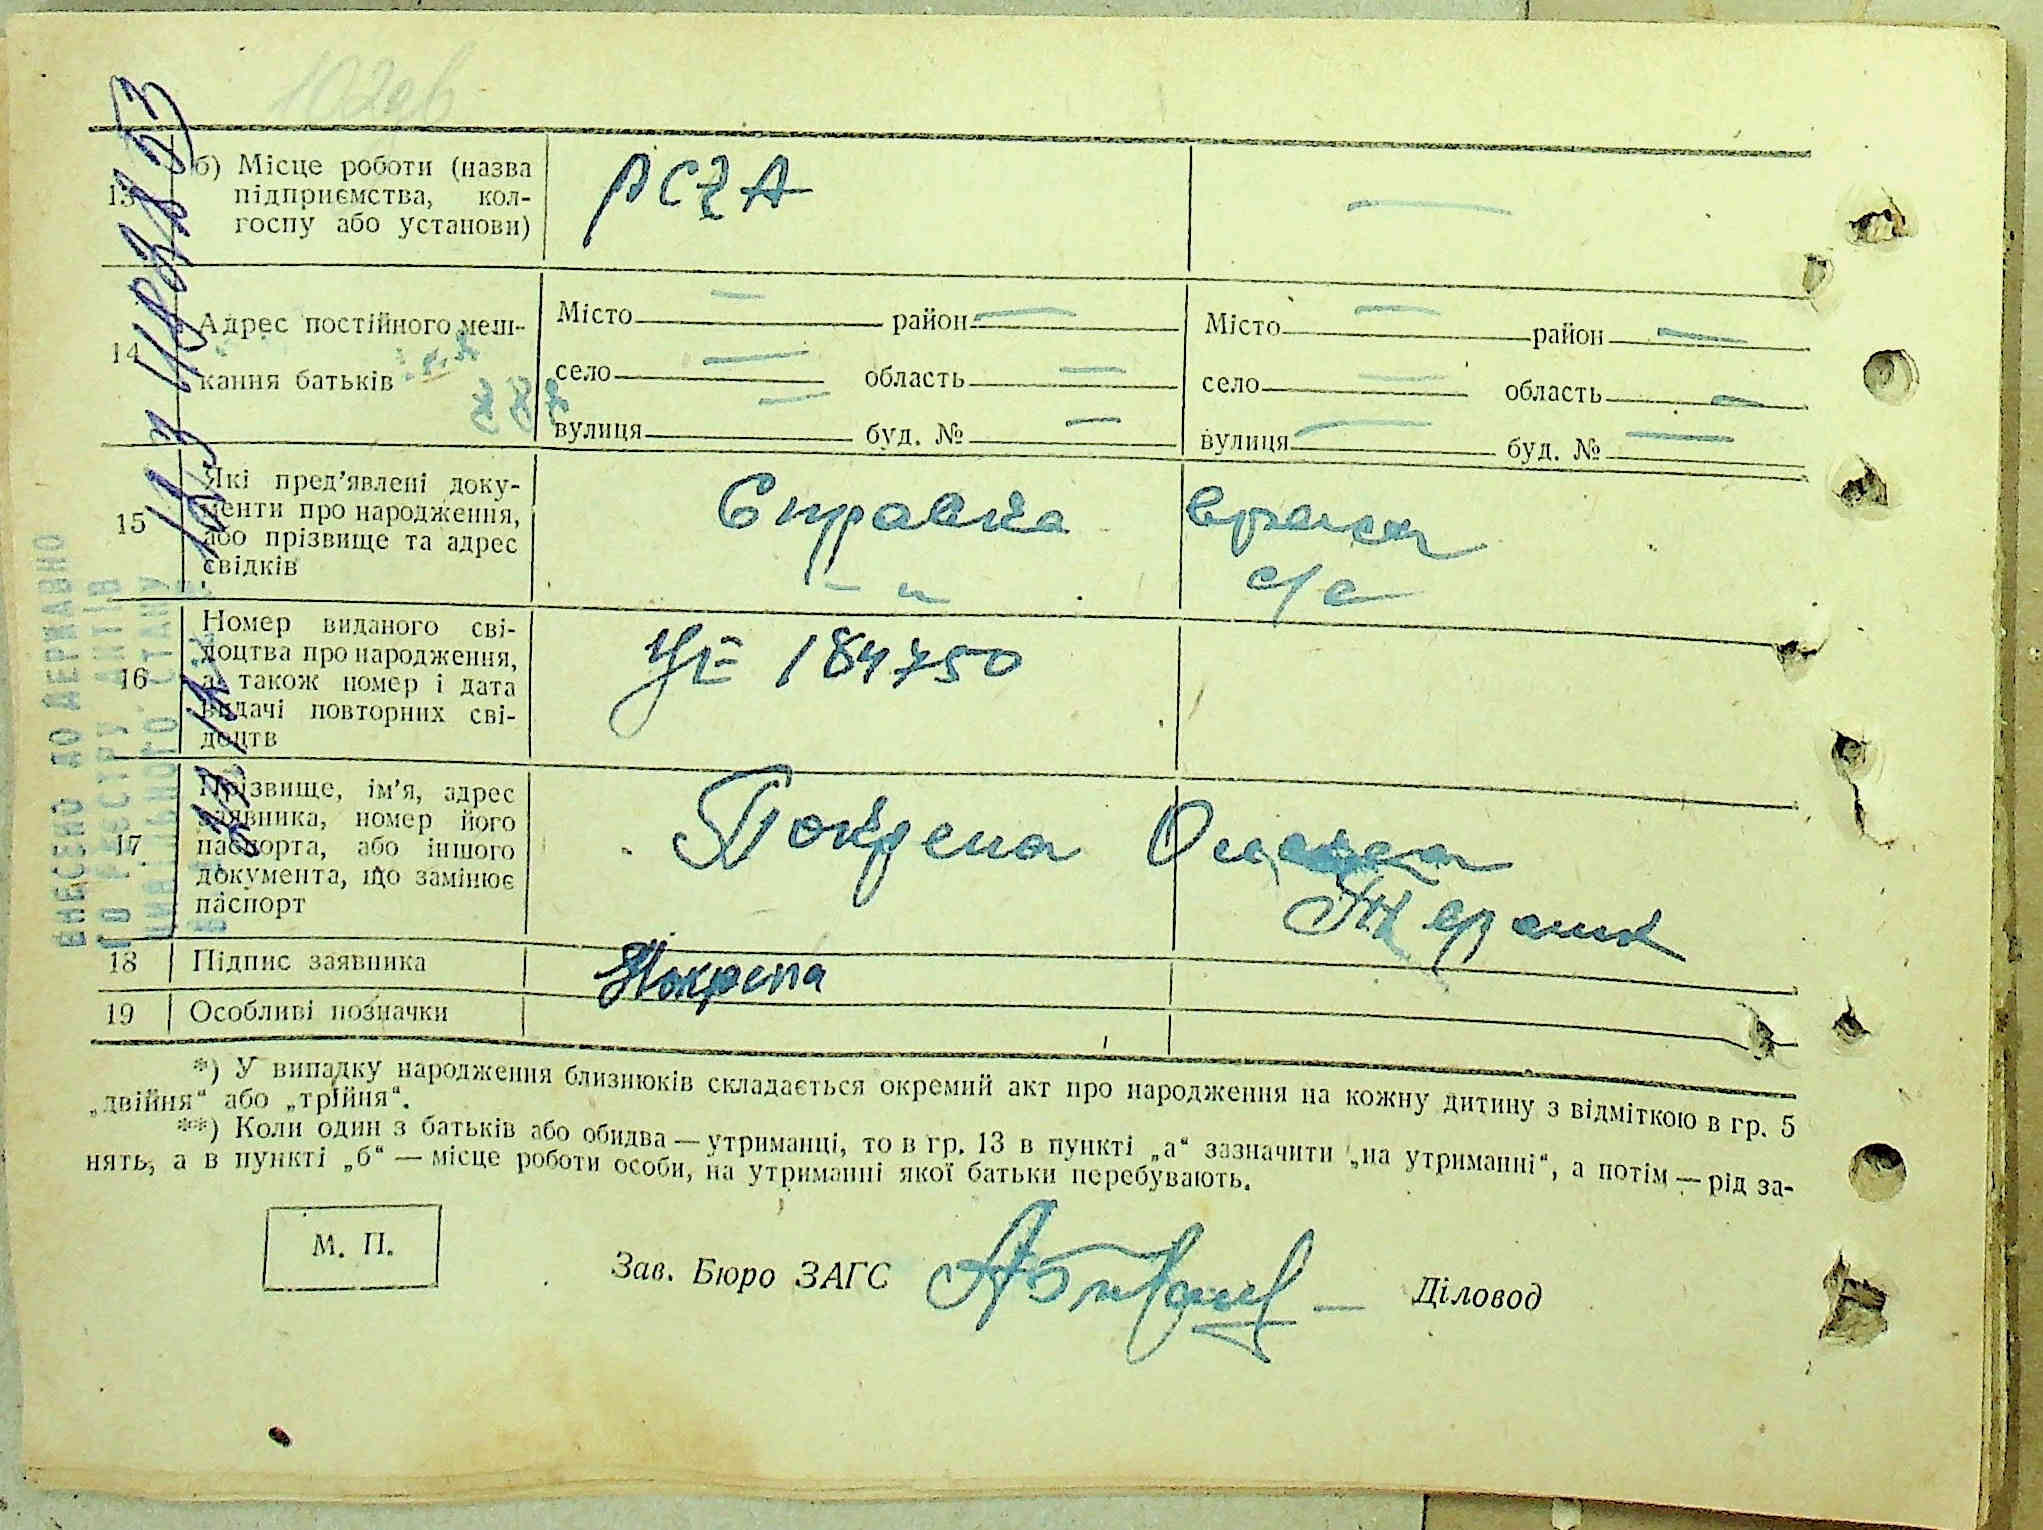 102 зв
13
б) Місце роботи (назва
підприємства, кол-
госпу або установи)
РСЧА
14
Адрес постійного меш-
кання батьків
Місто район
село область
вулиця буд. №
Місто район
село область
вулиця буд. №
15
Які пред'явлені доку-
менти про народження,
або прізвище та адрес
свідків
Справка врача
— „ — с/с
16
Номер виданого сві-
доцтва про народження,
а також номер і дата
видачі повторних сві-
доцтв
184750
17
Прізвище, ім'я, адрес
заявника, номер його
паспорта, або іншого
документа, що замінює
паспорт
18
Підпис заявника
19
Особливі позначки
*) У випадку народження близнюків складається окремий акт про народження на кожну дитину з відміткою в гр. 5
„двійня“ або „трійня“.
**) Коли один з батьків або обидва — утриманці, то в гр. 13 в пункті „а“ зазначити „на утриманні“, а потім — рід за-
нять, а в пункті „б“ — місце роботи особи, на утриманні якої батьки перебувають.
М. П.
Зав. Бюро ЗАГС
Діловод
ВНЕСЕНО ДО ДЕРЖАВНО
ГО РЕЄСТРУ АКТІВ
ЦИВІЛЬНОГО СТАНУ